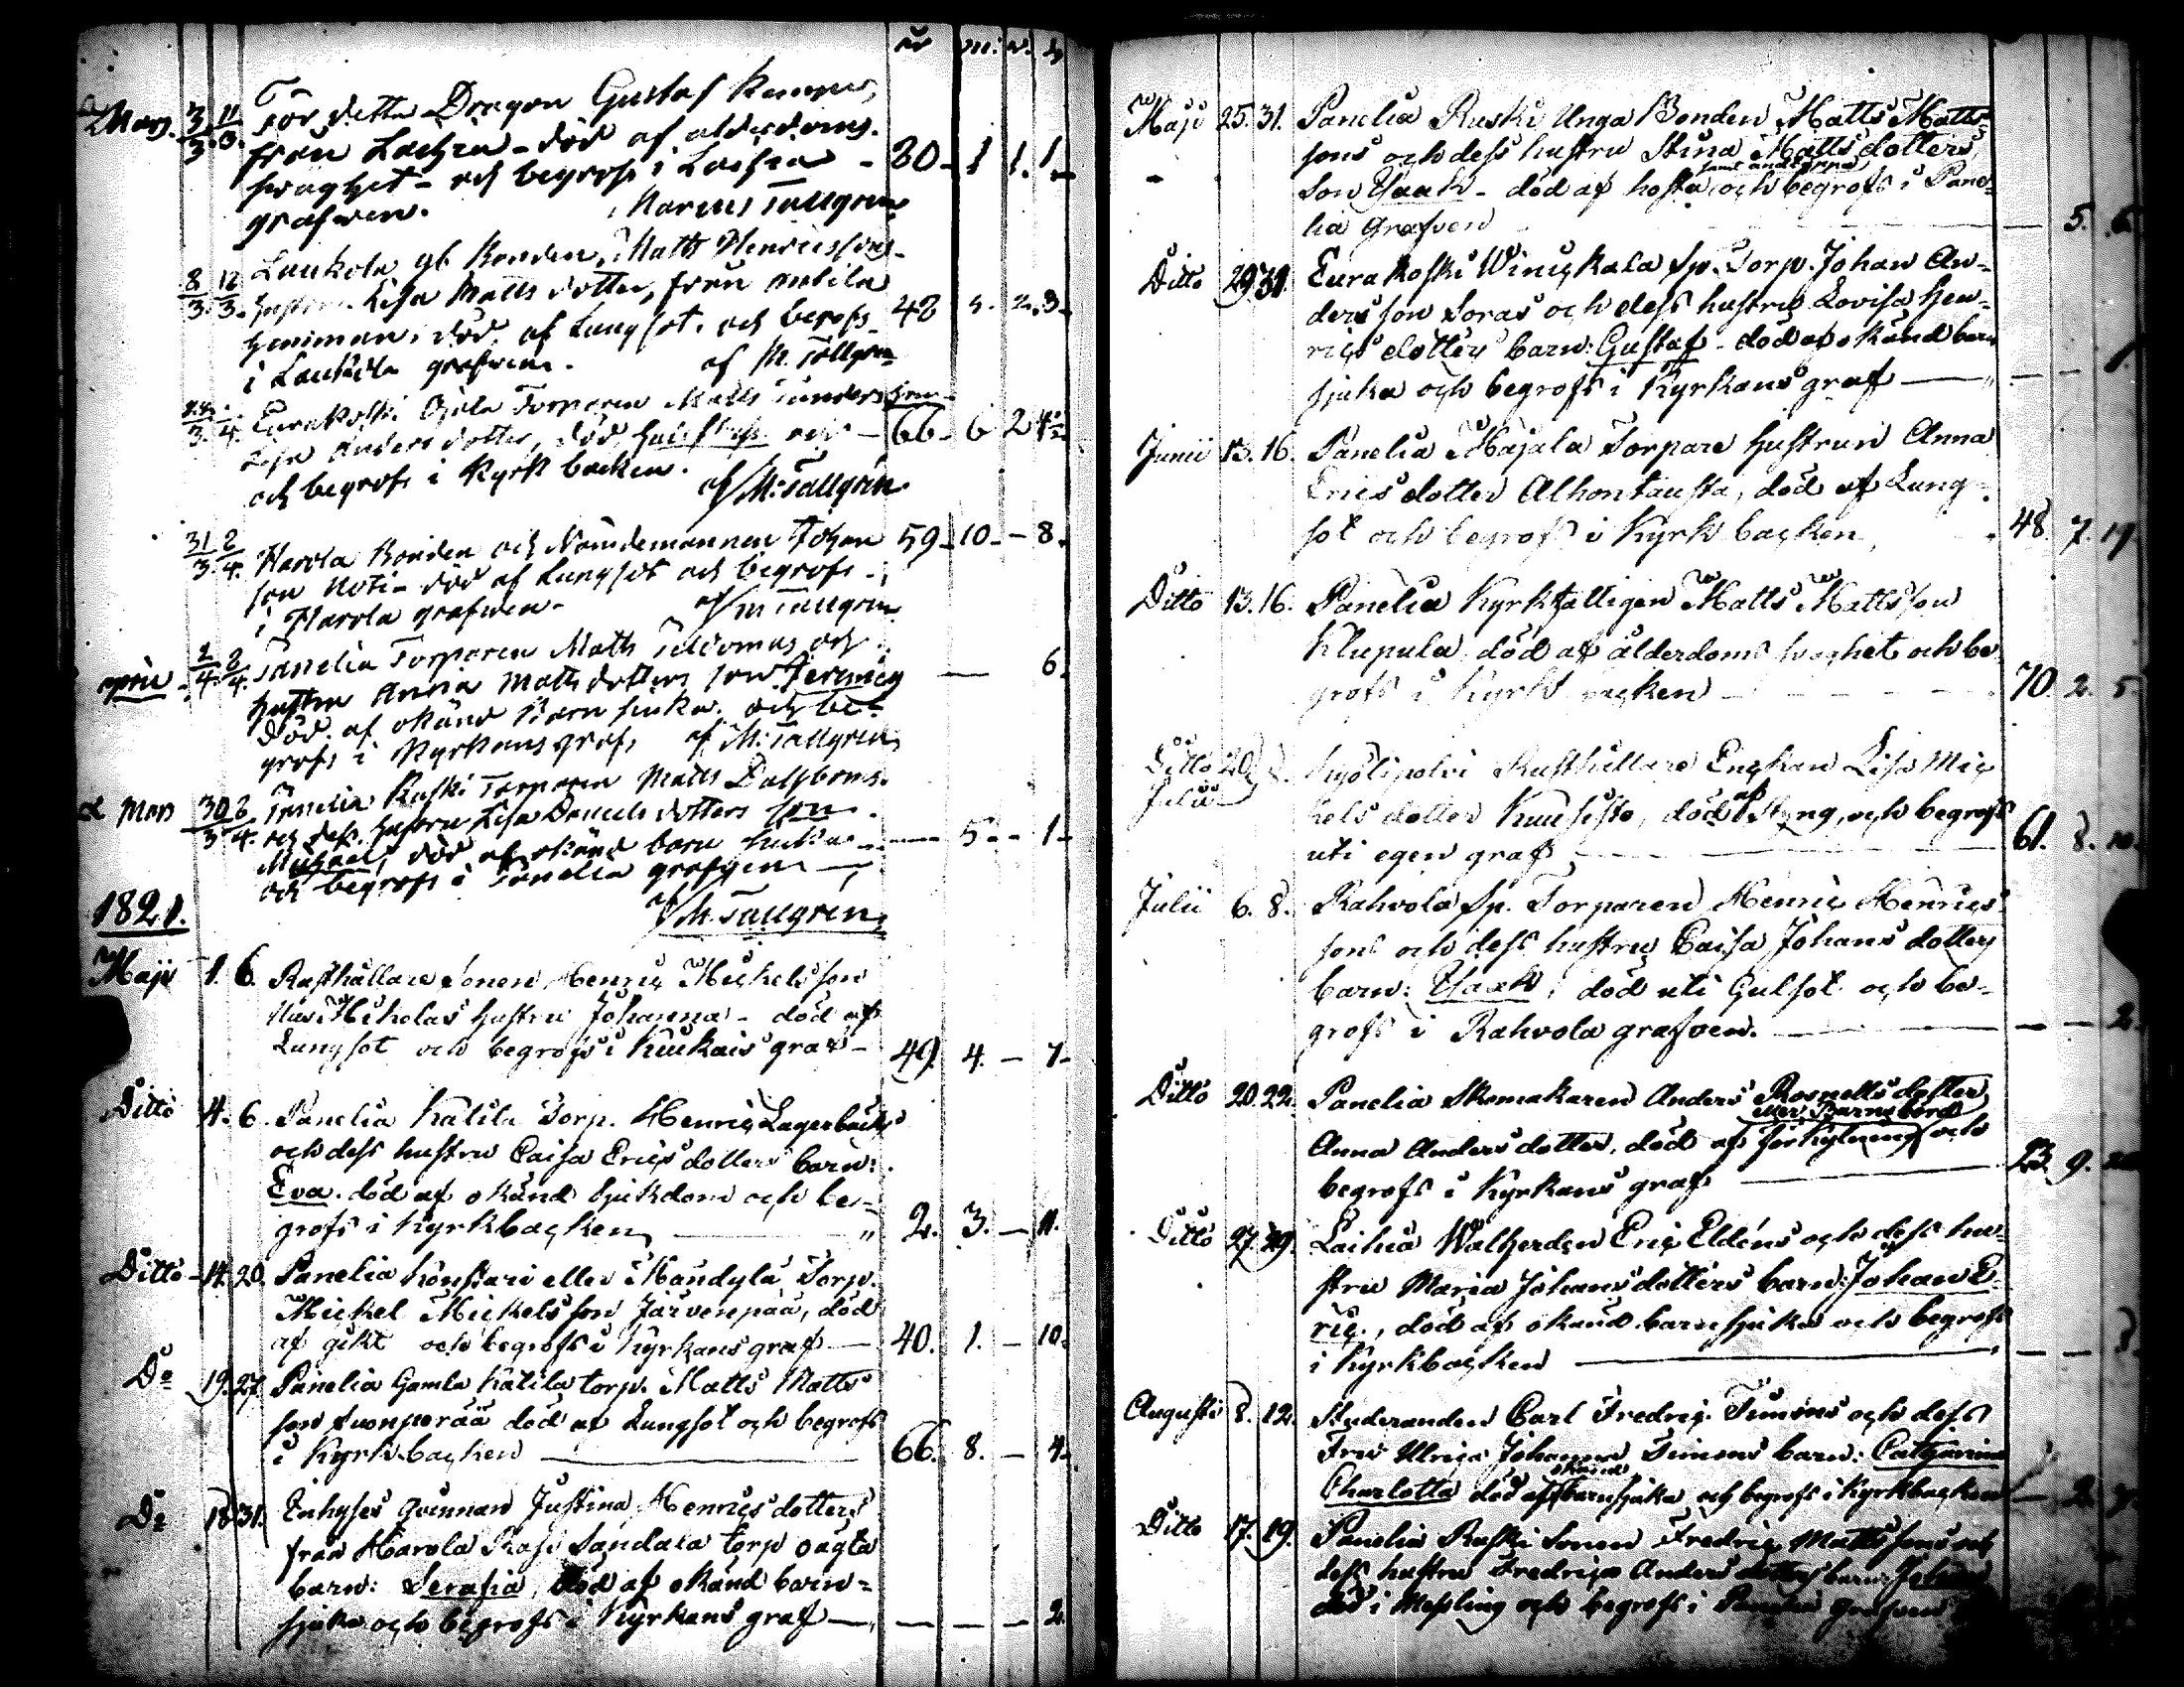 år m: v. d
Mars. 3/3. 11/3. För detta Dragon Gustaf
från Laihia - död af ålderdoms
svaghet - och begrofs i Laihia - 80 - 1 1. 1
grafven. Marcus Tallgren
8/3. 12/3. Laukola gb Bonden, Matts Henricssons
hustru Lisa Matts dotter, från Antila
hemman, död af Lungsot. och begrofs 48 2. 3.
i Laukola grafven. af M. Tallgren
3. 4. Eurakoski Torparen Matts hem
Lisa Anders dotter, död och 66 - 6 2 4
och begrofs i Kyrk backen.
af M: Tallgren
31/3. 2/4. Harola Bonden och Nämdemannen Johan 59 - 10 - - 8.
son Noti - död af Lungsot och begrofs
i Harola grafven - af M Tallgren
April 1/4. 2/4. Panelia Torparen Matts och
hustru Anna Matts dotters son Jeremias — 6.
död. af okänd Barn siuka. och be-
grofs i Kyrkans graf, af M: Tallgren
Mars 30/3 2/4. Panelia Ruski Torparen Matts
och dess hustru Lisa Daniels dotters son
Michael, död af okänd barn siuka — 5 - - 1 -
och begrofs i Panelia grafven —
af M. Tallgren
1821.
Maji 1. 6. Rusthållare Sonen Henric Mickelsson
Mikolas hustru Johanna - död af
Lungsot och begrofs i Kuukais graf - 49. 4. - 7 -
Ditto 4. 6. Panelia Katila Torp. Henric Lagerbäcks
och dess hustru Caisa Erics dotters barn:
Eva. död af okänd Sjukdom och be-
grofs i Kyrkbacken — " 2. 3. - 11.
Ditto - 14. 20. Panelia Könstari eller i Mandylä Torp.
Mickel Mickelsson Järvenpää, död
af gikt och begrofs i Kyrkans graf — 40. 1. - 10.
Do 19. 27. Panelia Gamla Katila torp. Matts Matts
son Suonperää död af Lungsot och begrofs
i Kyrk backen — 66. 8. - 4 -
Do 18 31. Enhyses qvinnan Justina Henrics dotters
från Harola Sandala torp oägta
barn: Serafia, död af okänd barn=
sjuka och begrofs i Kyrkans graf — — — 2.
Maji 25. 31. Panelia Ruski Unga Bonden Matts Matts
sons och dess hustru Stina Matts dotters
samt andtäppa
Son Isaak - död af hosta och begrofs i Pane=
lia Grafven — 5. 6.
Ditto 29 31. Eurakoski Winickala Sp. Torp. Johan An=
dersson Soras och dess hustru Lovisa Hen=
rics dotters barn: Gustaf - död af okänd barn
sjuka och begrofs i Kyrkans graf — 1.
Junii 13. 16. Panelia Majala Torpare hustrun Anna
Erics dotter Alhontausta, död af Lung=
sot och begrofs i Kyrk backen, 48. 7. 19
Ditto 13. 16. Panelia Kyrkfattigen Matts Mattsson
Klupula, död af ålderdoms svaghet och be
grofs i Kyrk backen — 70. 2. 5.
Ditto 20
Julii Kyölipolvi Rusthållare Enckan Lisa Mic
kels dotter Kuusisto, död af Styng, och begrofs
uti egen graf — 61. 8. 10.
Julii 6. 8. Rahvola Sp. Torparen Henric Henrics
sons och dess hustru Caisa Johans dotters
barn: Isaak, död uti Gulsot och be=
grofs i Rahvola grafven. — — — 2.
Ditto 20. 22. Panelia Skomakaren Anders Rosnells dotter
efter Barns börd
Anna Anders dotter, död af förkylning och
begrofs i Kyrkans graf — 23. 9.
Ditto 27. 29. Laihia Walherden Eric Eldéns och dess hu=
stru Maria Johans dotters barn: Johan E
ric., död af okänd barnsjuka och begrofs
i Kyrkbacken — — —
Augusti 8. 12. Studeranden Carl Fredric Timéns och dess
Fru Ulrica Johanna Timéns barn: Catharina
okänd
Charlotta död af barnsjuka och begrofs i Kyrkbacken — 2. 7.
Ditto 17. 19. Panelia Ruski Sonen Fredric Mattssons och
dess hustru Fredrica Anders dotters barn:
död i Messling och begrofs i Panelia grafven